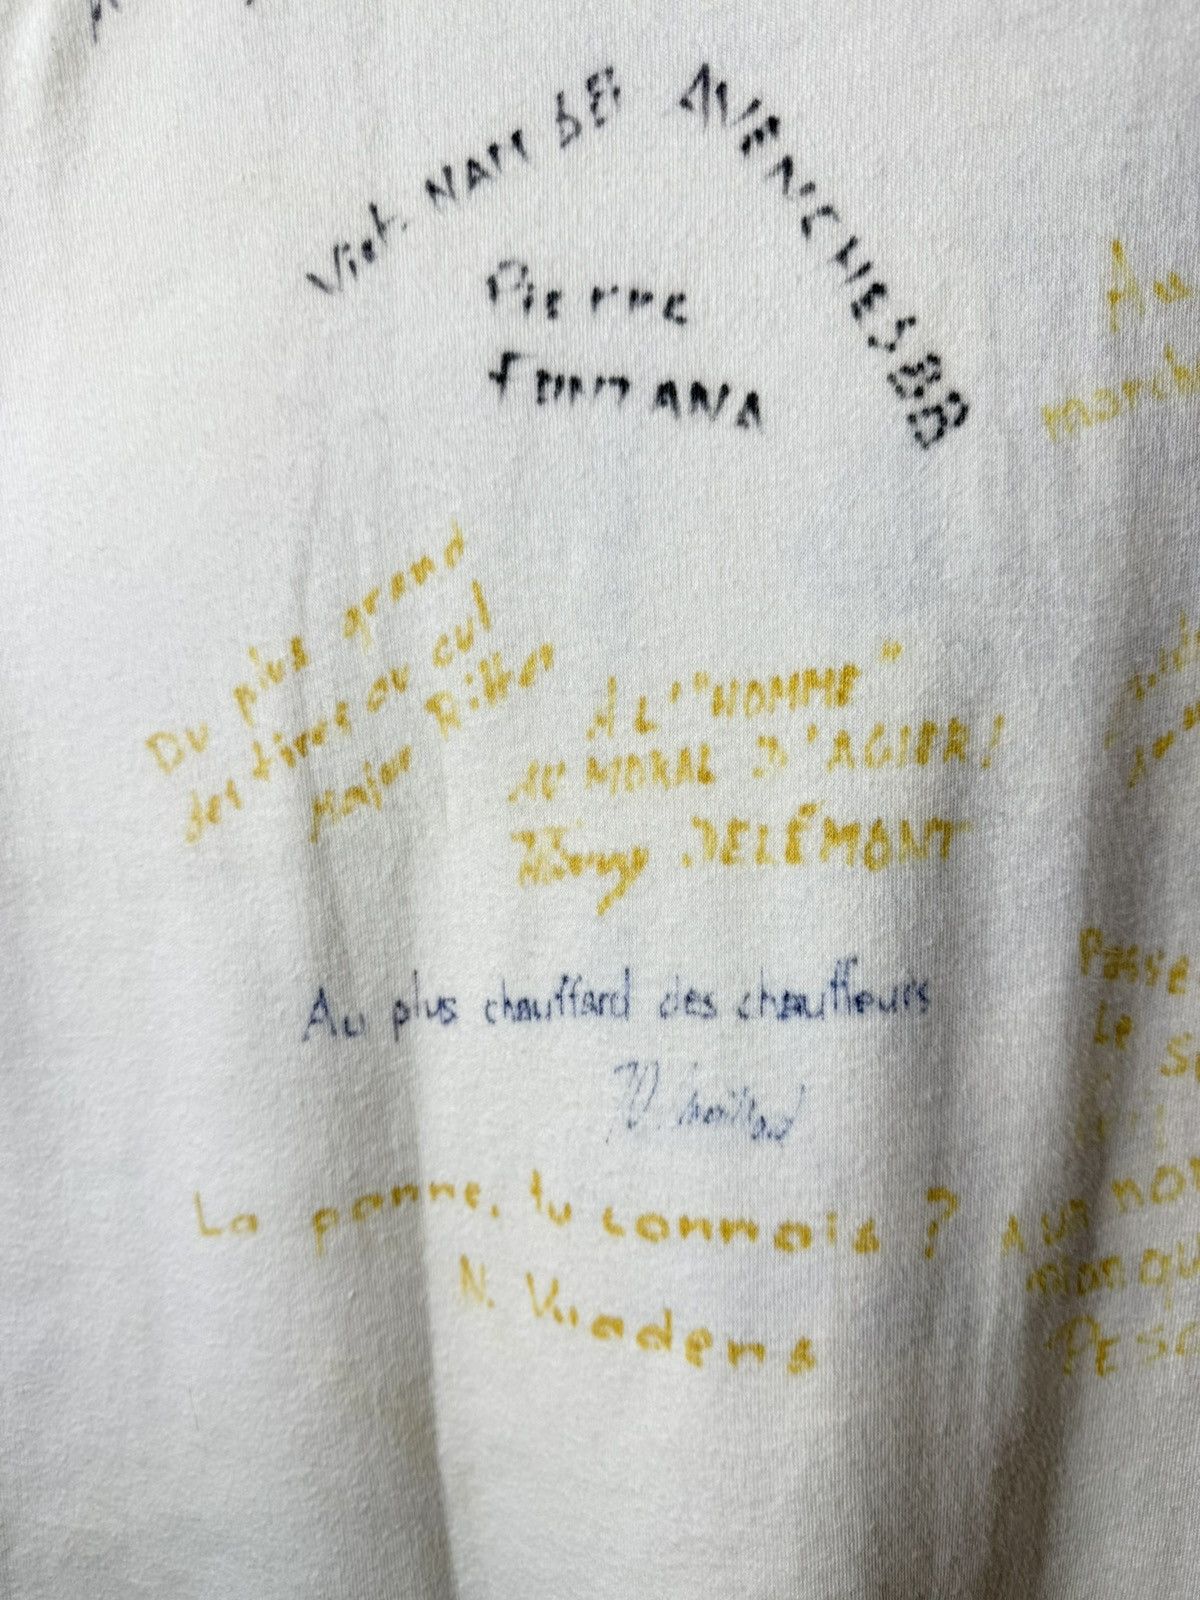 Viet. NAM DE AVENCHES 88
Pierre
FONTANA
Au
march
Du plus grand
des tires au cul
Major Ritter
À L'"HOMME"
AU MORAL D'ACIER!
DELÉMONT
Au plus chauffard des chauffeurs
La panne, tu connais ?
N. Vuadens
Passe
Le
A un
manqu